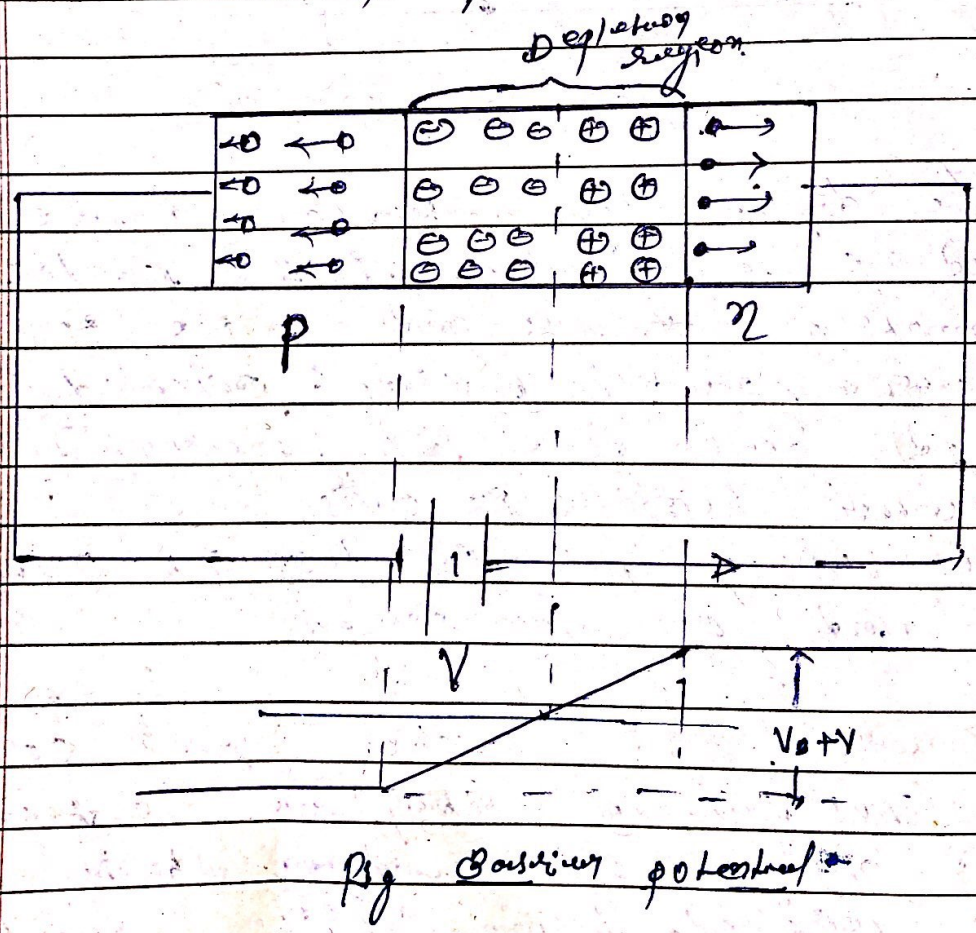 Depletion
region
P
n
V
V₀ + V
Fig Barrier potential